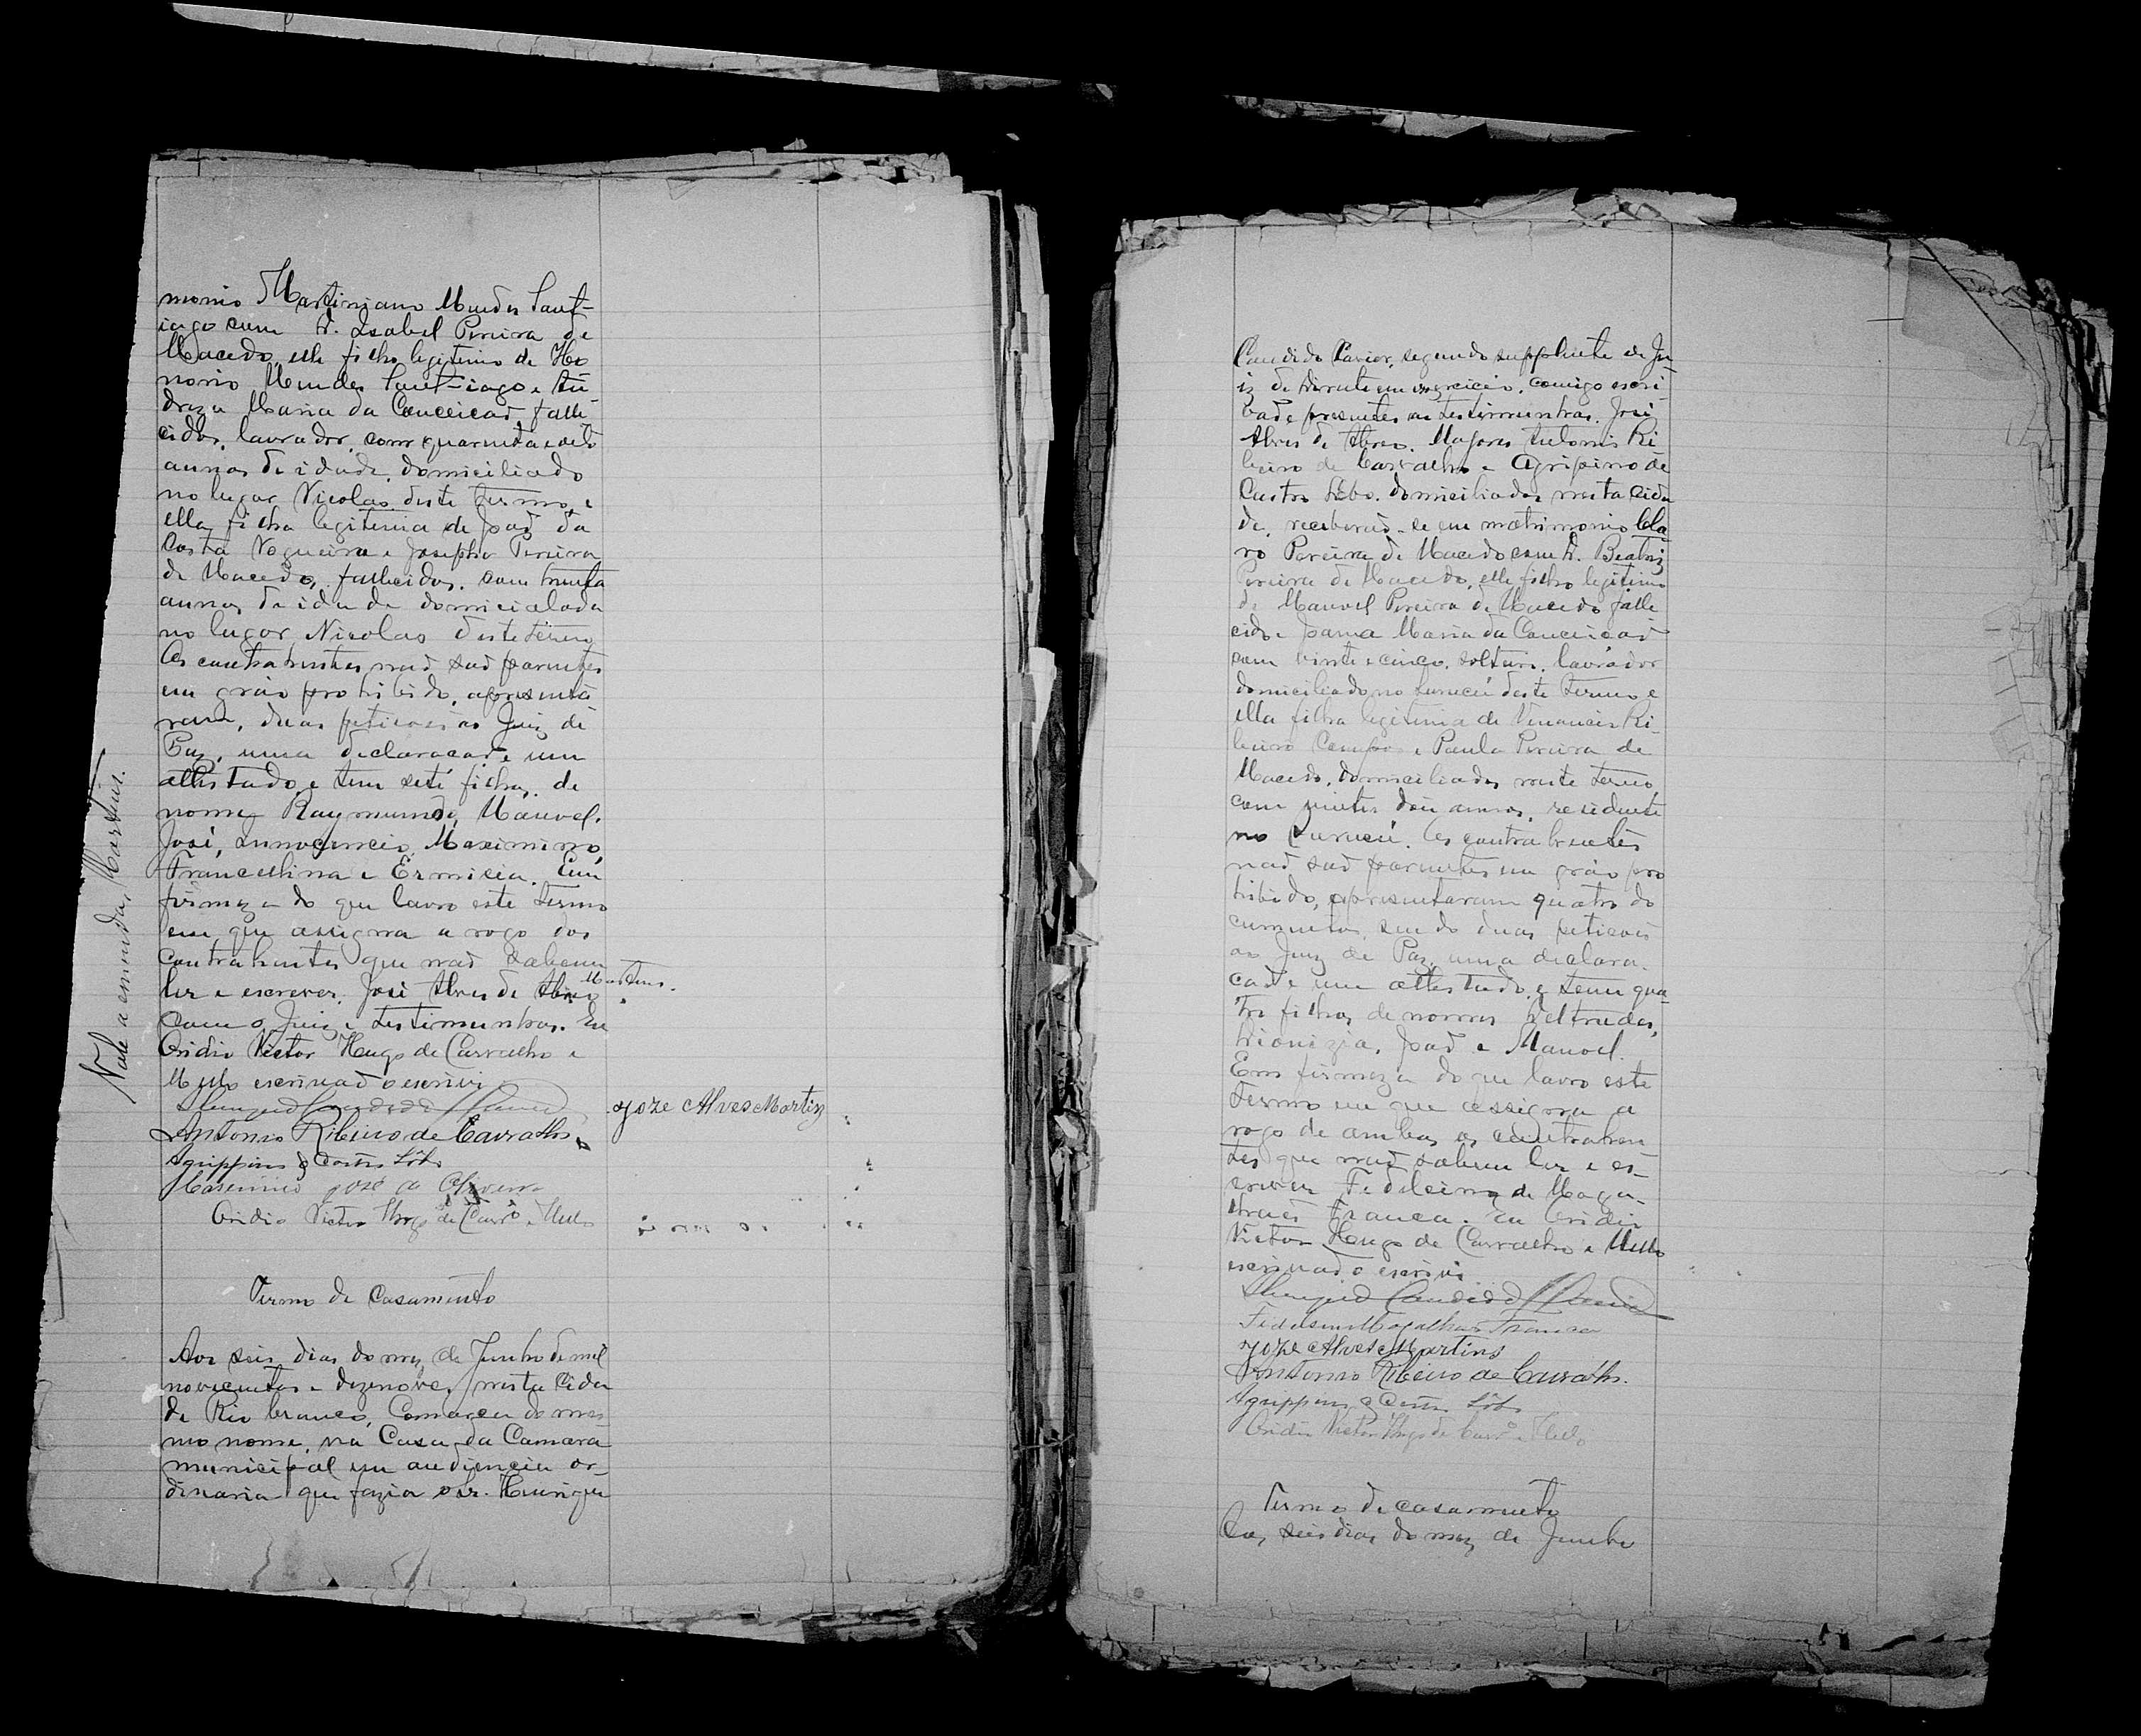 monio Martiniano Mendes Sant-
iago com D. Isabel Pereira de
Macedo, elle filho legitimo de Ho
norio Mendes Sant-iago e An
dreza Maria da Conceicaõ falle
cidos, lavrador, com quarenta e oito
annos de idade, domiciliado
no lugar Nicolao deste termo, e
ella filha legitima de Joaõ da
Costa Nogueira e Josepha Pereira
de Macedo, fallecidos, com trinta
annos de idade domicialada
no lugar Nicolao deste termo
Os contrahentes naõ saõ parentes
em gráo prohibido, apresenta
ram, duas peticoes ao Juiz de
Paz, uma declaracaõ e um
attestado e tem sete filhos de
nomes Raymundo, Manoel,
José, Innocencio, Maximino,
Francellina e Ermicia. Em
firmeza do que lavro este termo
em que assigna a rogo dos
contrahentes que naõ sabem
ler e escrever, José Alves de Abreo Martins.
com o Juiz e testimunhas. Eu
Ovidio Victor Hugo de Carvalho e
Mello escrivaõ o escrivi
Candido
Joze Alves Martinz
Antonio Ribeiro de Carvalho
Agrippino de Castro Lôbo
José de Oliveira
Ovidio Victor Hugo de Carvº e Mello
Vale a emenda, Martins.
Termo de Casamento
Aos seis dias do mez de Junho de mil
novecentos e dezenove, nesta Cida
de Rio branco, Comarca do mes
mo nome, na Casa da Camara
municipal em audiencia or-
dinaria que fazia o Sr. Henrique
Candido Xavier, segundo supplente de Ju
iz de Direito em exercicio, comigo escri
vaõ e presentes as testimunhas, José
Alves de Abreo, Majores Antonio Ri
beiro de Carvalho e Agripino de
Castro Lôbo, domiciliados nesta Cida
de, receberaõ-se em matrimonio Cla
ro Pereira de Macedo com D. Beatriz
Pereira de Macedo, elle filho legitimo
de Manoel Pereira de Macedo falle
cido e Joana Maria da Conceicaõ
com vinte e cinco, solteiro, lavrador
domiciliado no deste termo e
ella filha legitima de Venancio Ri-
beiro Campos e Paula Pereira de
Macedo, domiciliados neste termo
com vinte dois annos, residente
no Os contrahentes
naõ saõ parentes em gráo pro
hibido, apresentaram quatro do
cumentos, sendo duas peticoes
ao Juiz de Paz, uma declara-
caõ e um attestado, e tem qua-
tro filhos de nomes
Joaõ e Manoel.
Em firmeza do que lavro este
termo em que assigna a
rogo de ambos os contrahen
tes que naõ sabem ler e es-
crever Fidelcino de Maga-
lhaes Franca. Eu Ovidio
Victor Hugo de Carvalho e Mello
escrivaõ o escrivi
Candido
Fidelcino Magalhães Franca
Joze Alves Martins
Antonio Ribeiro de Carvalho.
Agrippino de Castro Lôbo
Ovidio Victor Hugo de Carvº e Mello
Termo de casamento
Aos seis dias do mez de Junho